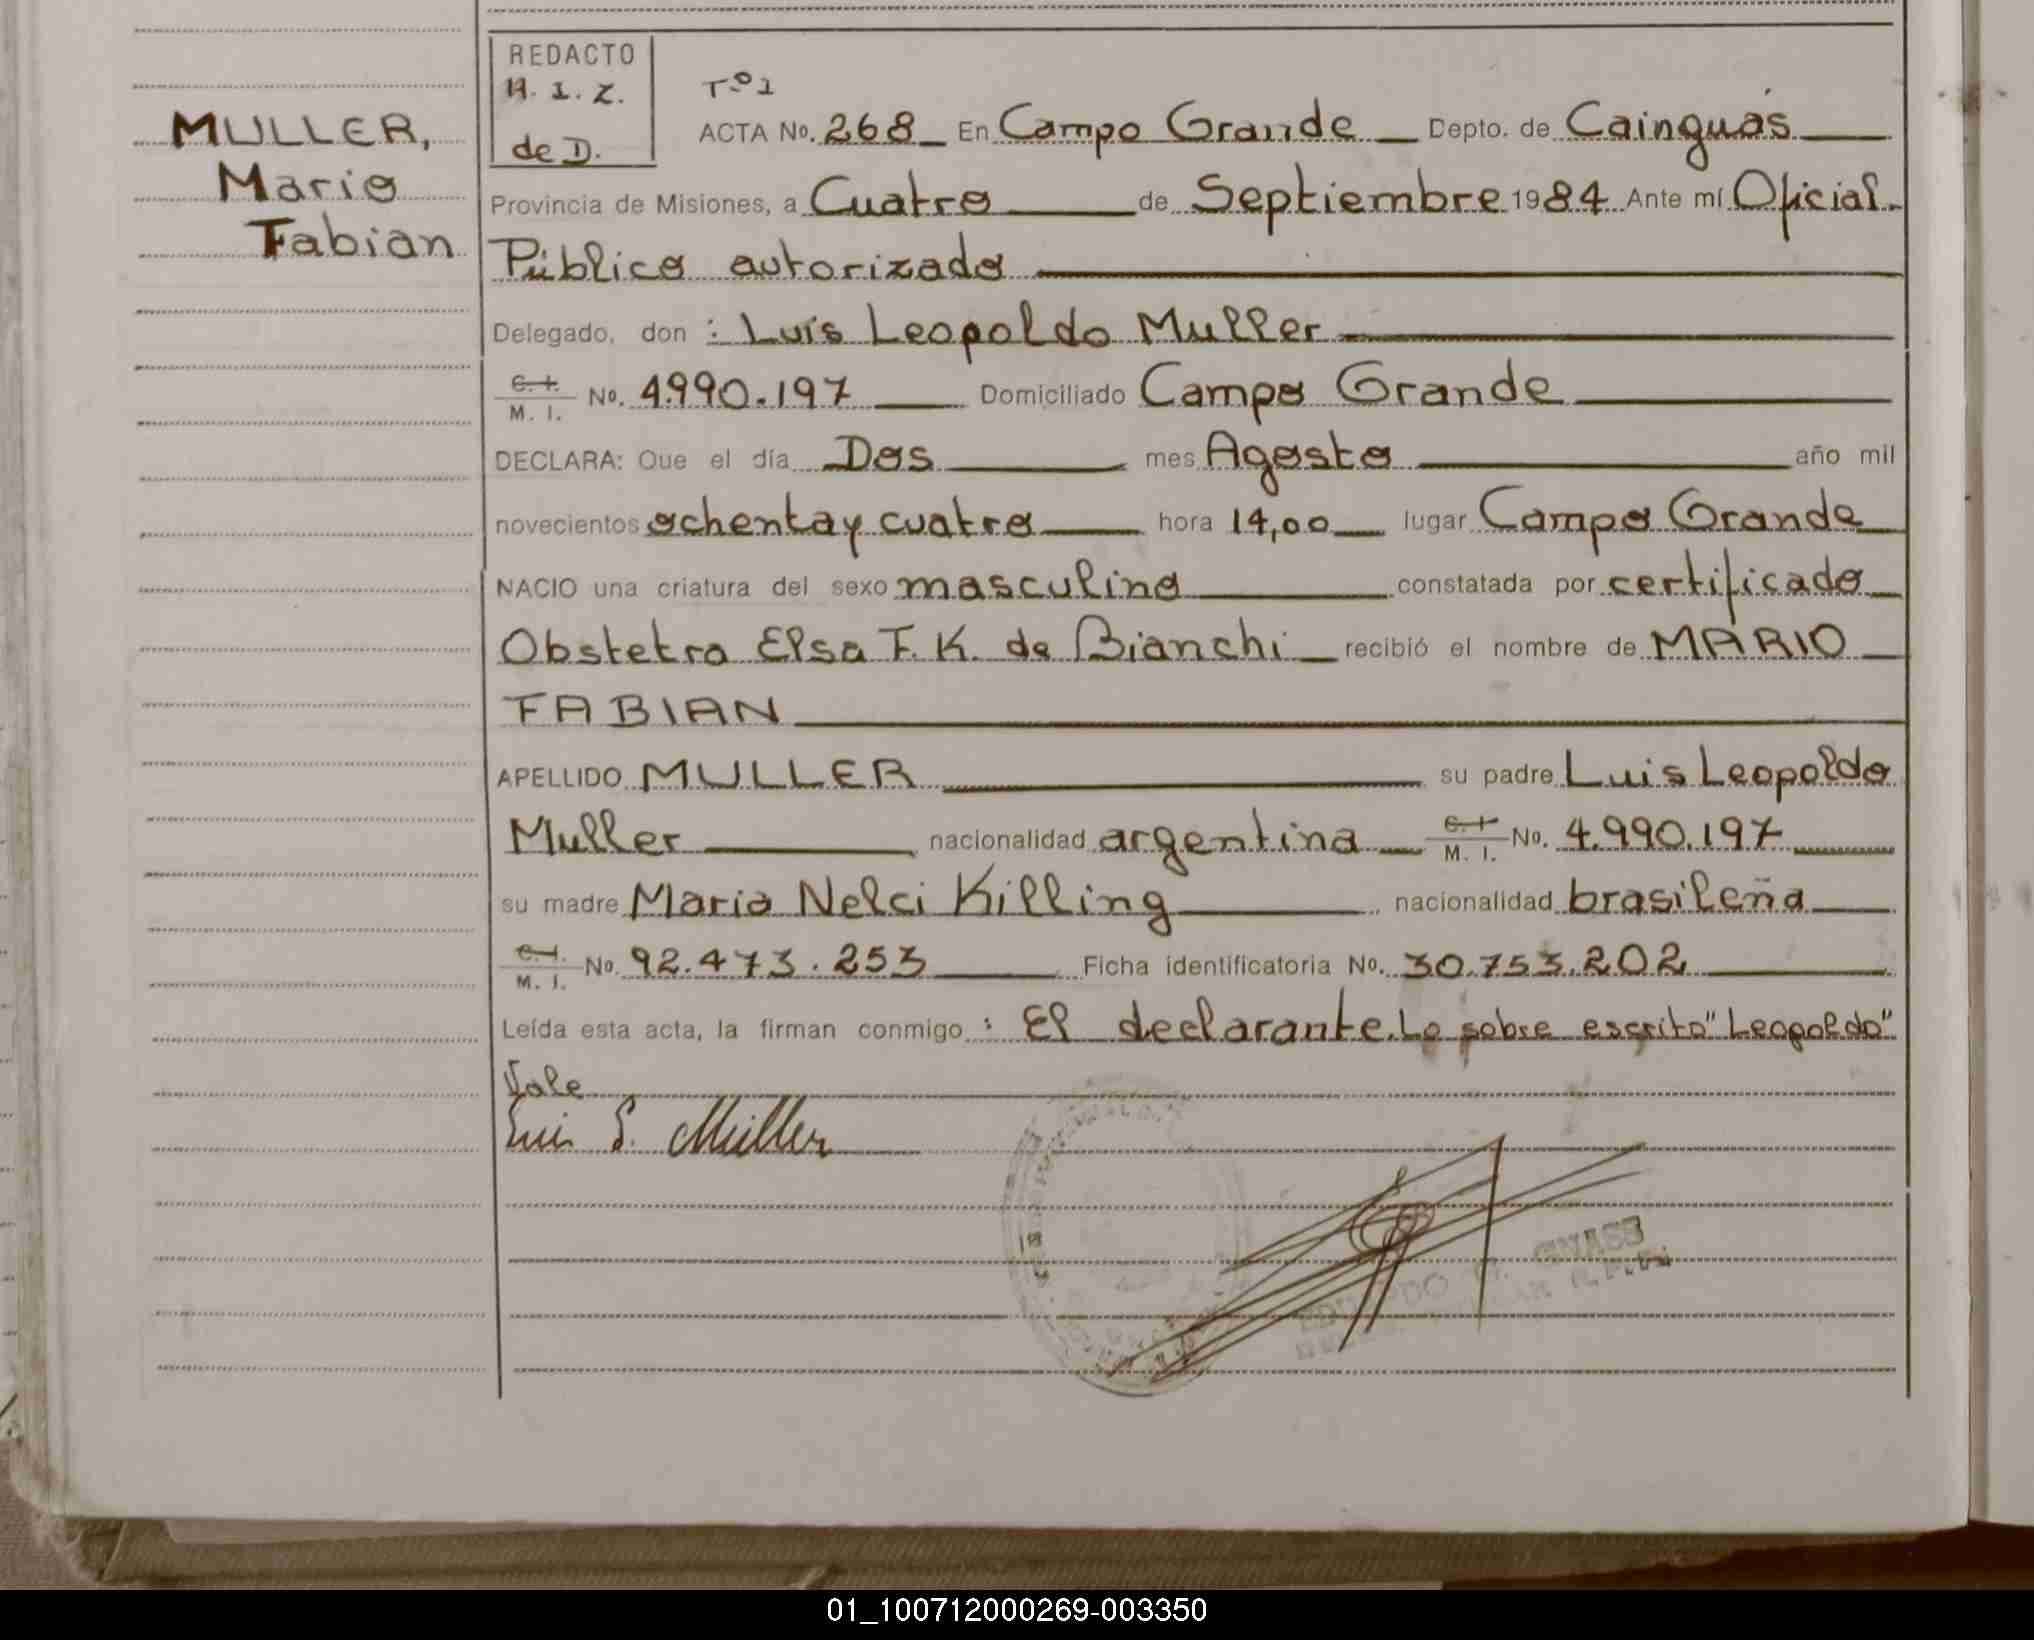 REDACTO
H. I. Z.
de D.
MULLER,
Mario
Fabian
Tº1
ACTA No. 268 En Campo Grande Depto. de Cainguás
Provincia de Misiones, a Cuatro de Septiembre 1984 Ante mí Oficial
Público autorizado
Delegado, don : Luis Leopoldo Muller
C. I. M. I. No. 4.990.197 Domiciliado Campo Grande
DECLARA: Que el día Dos mes Agosto año mil
novecientos ochenta y cuatro hora 14,00 lugar Campo Grande
NACIO una criatura del sexo masculino constatada por certificado
Obstetra Elsa F. K. de Bianchi recibió el nombre de MARIO
FABIAN
APELLIDO MULLER su padre Luis Leopoldo
Muller nacionalidad argentina C. I. M. I. No. 4.990.197
su madre Maria Nelci Killing nacionalidad brasileña
C. I. M. I. No. 92.473.253 Ficha identificatoria No. 30.753.202
Leída esta acta, la firman conmigo : El declarante. Lo sobre escrito "Leopoldo"
Vale
Luis L. Müller
01_100712000269-003350